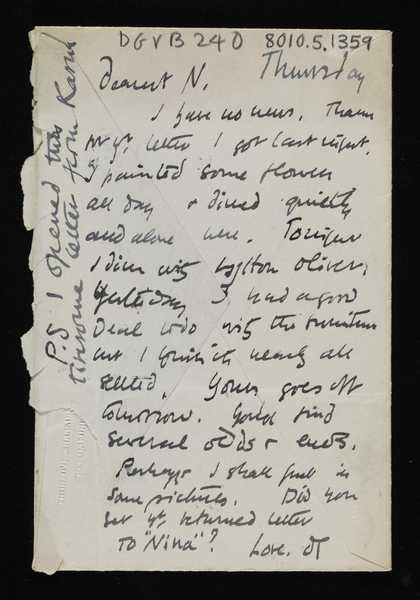 DGVB 240 8010.5.1359
Thursday
Dearest N.
I have no news. Thanks
for yr. letter I got last night.
I painted some flowers
all day & dined quietly
and alone here. Tonight
I dine with Oliver.
Yesterday I had a good
Deal to do with the furniture
but I think it's nearly all
settled. Yours goes off
tomorrow. You'll find
several odds & ends.
Perhaps I shall put in
some pictures. Did you
get yr. returned letter
to "Nina"? Love.
P.S I opened this
tiresome letter from